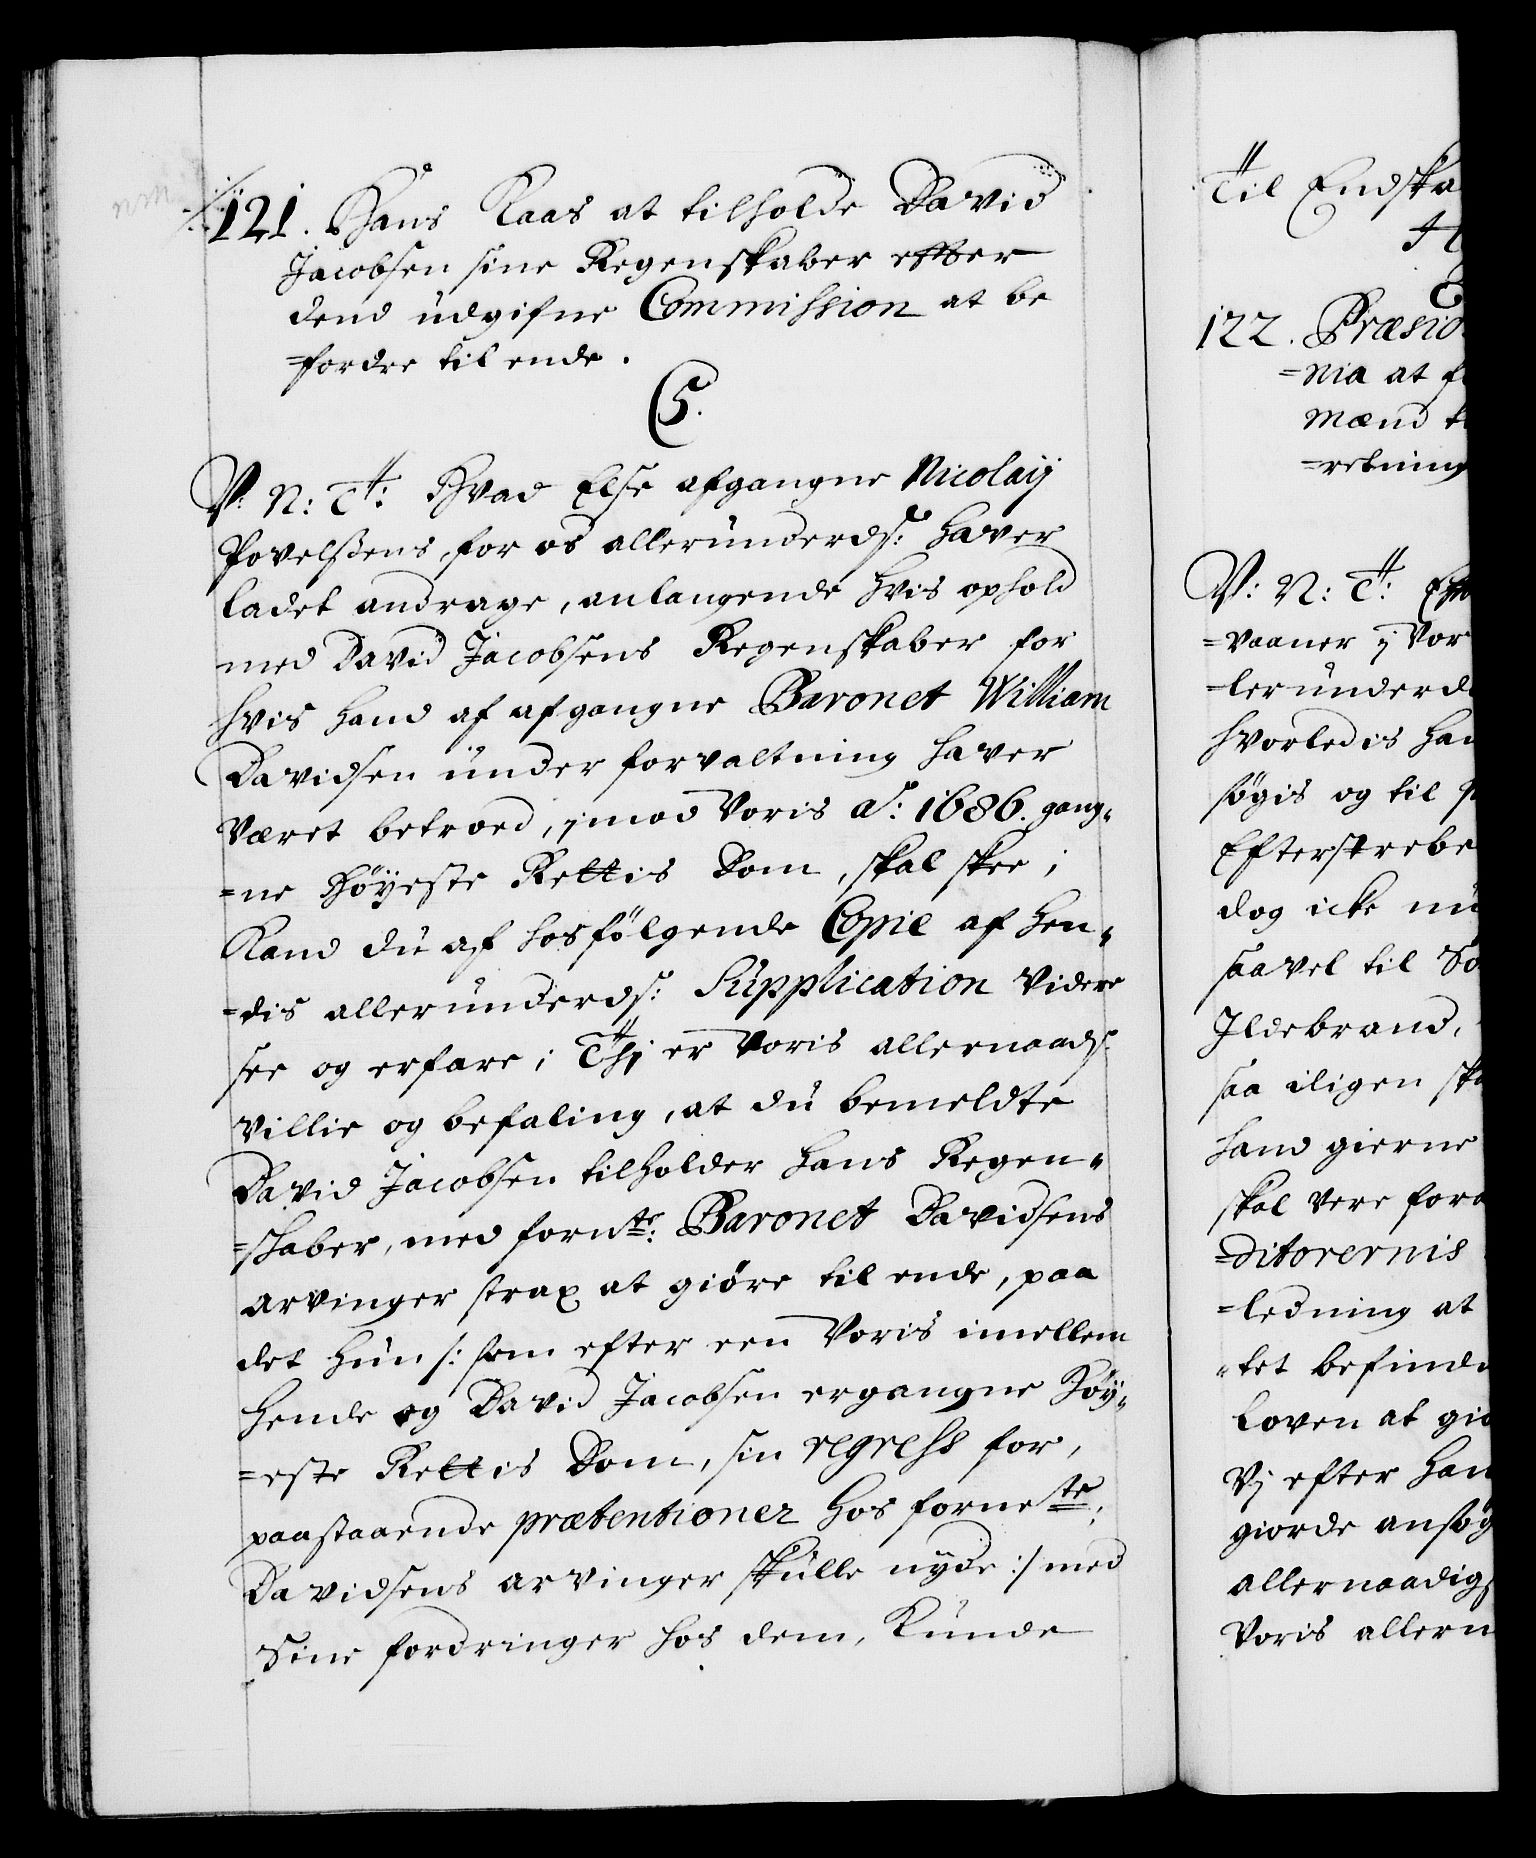 121. Hans Kaas at tilholde David
Jacobsen sine Regenskaber effter
dend udgifne Commission at be
=fordre til ende.
C5.
V: N: T: Hvad Else afgangne Nicolaij
Povelsens, for os allerunderds: haver
ladet andrage, anlangende hvis ophold
med David Jacobsens Regenskaber for
hvis hand af afgangne Baronet William
Davidsen under forvaltning haver
været betroed, imod Voris aO: 1686. gang-
=ne Höyeste Rettis Dom, skal skee;
Kand du af hosfölgende Copie af hen-
=dis allerunderds: Supplication videre
see og erfare; Thj er Voris allernaads:
villie og befaling, at du bemeldte
David Jacobsen tilholder hans Regen-
=skaber, med fornte: Baronet Davidsens
arvinger strax at giöre til ende, paa
det hun /: som efter een Voris imellem
hende og David Jacobsen ergangne Höy-
=este Rettis Dom, sin regress for,
paastaaende prætentioner hos forneste:
Davidsens arvinger skulle nyde :/ med
Sine fordringer hos dem, Kunde
Til Endska
122. Præsid
=nia at f
mænd t
=retning
V: N: T: Eft
=vaaner j Vor
=lerunderd
hvorledis han
søgis og til
Efterstrebe
dog icke nu
saavel til So
Ildebrand,
saa iligen ska
hand gierne
skal vere for
=ditorernis
=ledning at
=tet befinde
Loven at gio
Vj efter han
giorde ansøg
allernaadigs
Voris allern